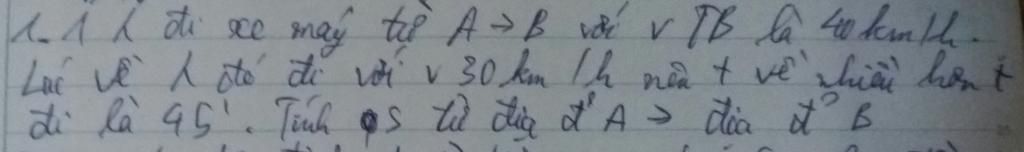 1. 1 λ đi xe máy từ A → B với v TB là 40 km/h.
Lúc về λ đó đi với v 30 km/h nên t về nhiều hơn t
đi là 45'. Tính qs từ địa đ² A → địa đ² B